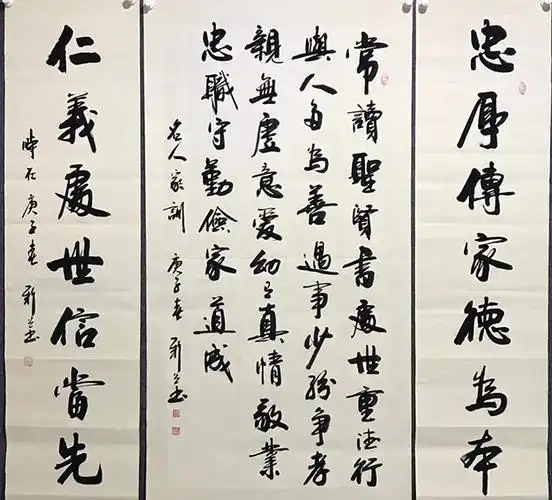 忠厚傳家德為本
常讀聖賢書處世重德行
與人多為善遇事少紛爭孝
親無虛意愛幼有真情敬業
忠職守勤儉家道成
名人家訓 庚子春 新書
仁義處世信當先
時在庚子春 新書